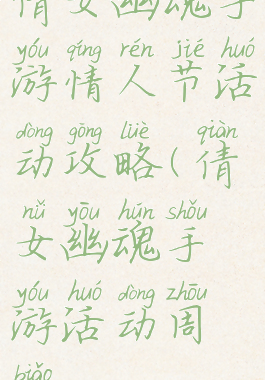 倩女幽魂手
yóu qíng rén jié huó
游情人节活
dòng gōng lüè qiàn
动攻略(倩
nǚ yōu hún shǒu
女幽魂手
yóu huó dòng zhōu
游活动周
biǎo